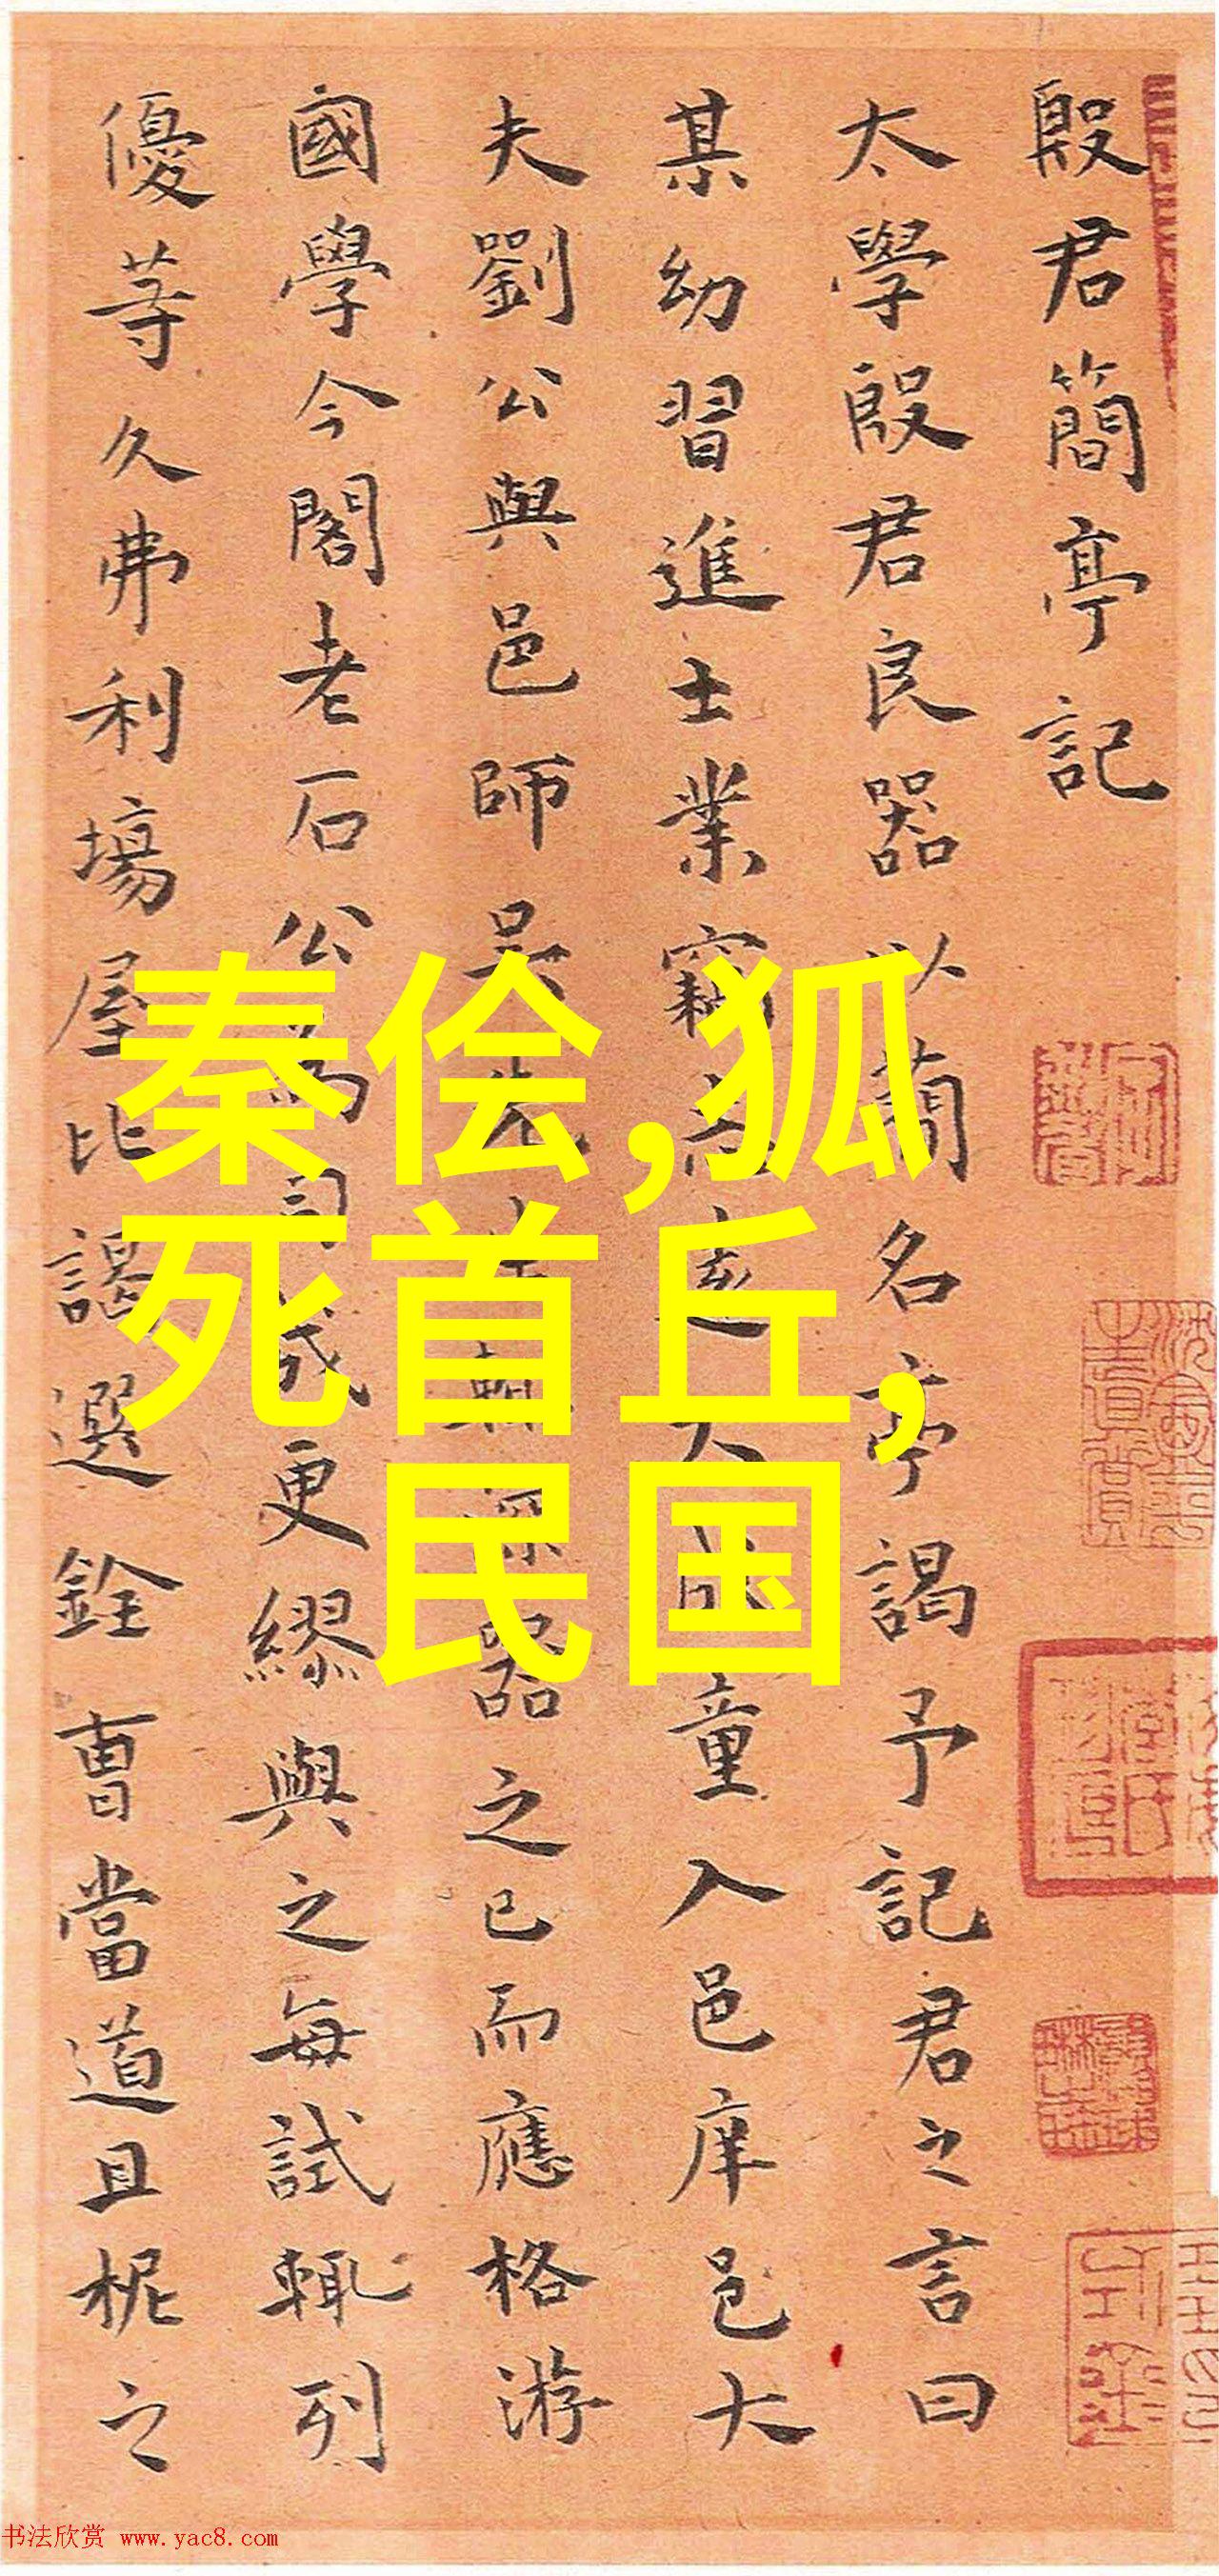 殷君簡亭記
太學殷君良器以蕑名亭謁予記君之言曰
某幼習進士業竊志逵大成童入邑庠邑大
夫劉公與邑師吴先生輒器之已而應格游
國學今閣老石公為司成更繆與之每試輒列
優等久弗利場屋比謁選銓曹當道且柅之
秦侩,狐
死首丘,
民国
书法欣赏 www.yac8.com